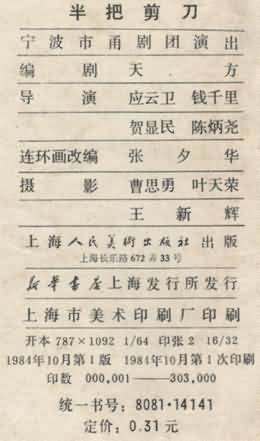 半把剪刀
宁波市甬剧团演出
编剧 天方
导演 应云卫 钱千里
贺显民 陈炳尧
连环画改编 张夕华
摄影 曹思勇 叶天荣
王新辉
上海人民美術出版社 出版
上海长乐路672弄33号
新华书店上海发行所发行
上海市美术印刷厂印刷
开本 787×1092 1/64 印张 2 16/32
1984年10月第1版 1984年10月第1次印刷
印数 000,001——303,000
统一书号：8081·14141
定价：0.31元